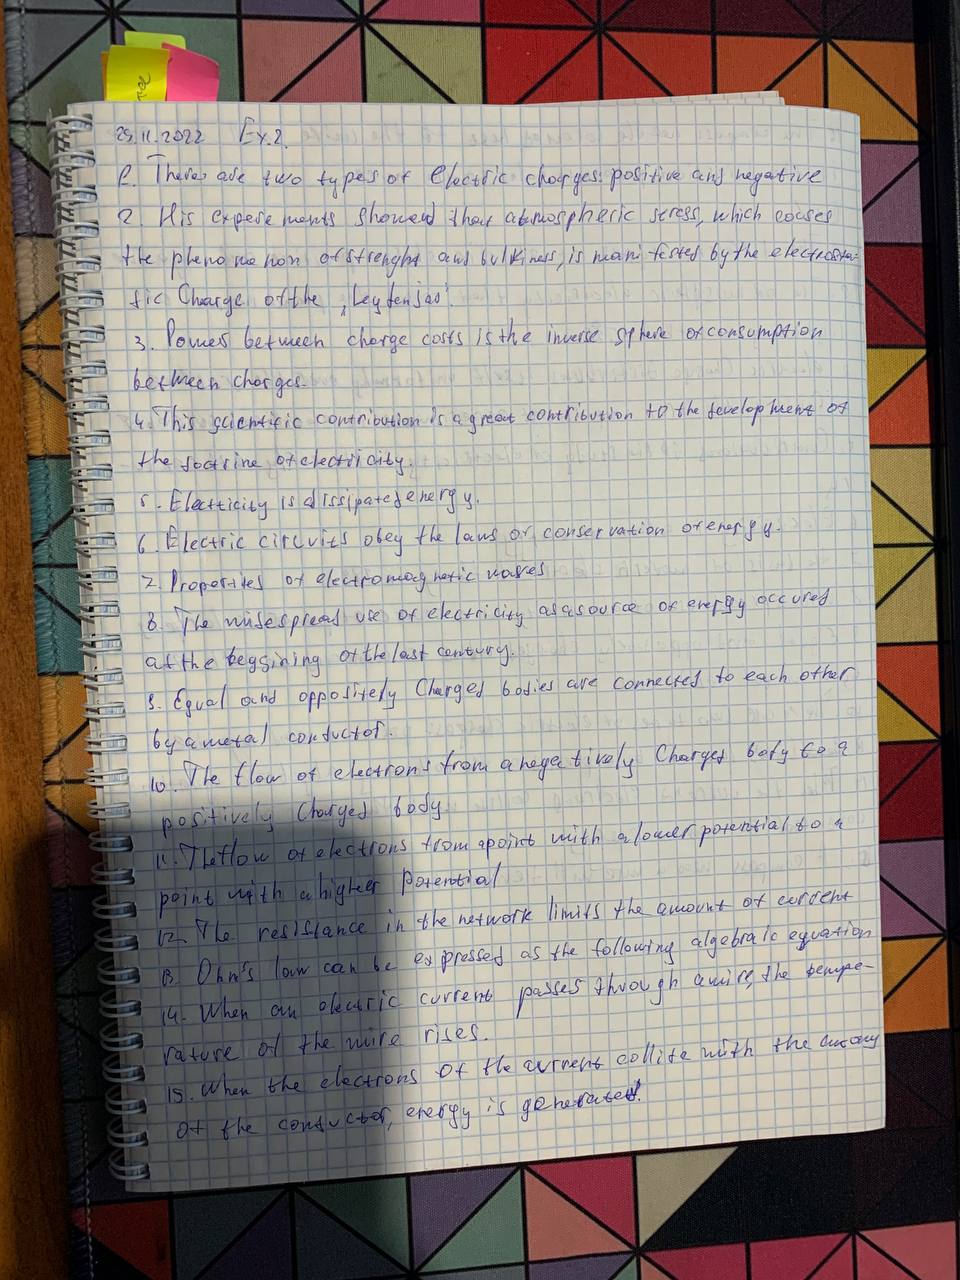 29.11.2022 Ex.2.
1. There are two types of electric charges: positive and negative
2. His experements showed that atmospheric stress, which couses
the phenomenon of strenght and bulkiness, is manifested by the electrosta-
tic Charge of the
3. Power between charge costs is the inverse sphere of consumption
between charges.
4. This scientific contribution is a great contribution to the development of
the doctrine of electricity.
5. Electicity is dissipated energy.
6. Electric circuits obey the laws of conservation of energy.
7. Properties of electromagnetic waves
8. The widespread use of electricity as a source of energy occured
at the beggining of the last century.
9. Equal and oppositely Charged bodies are connected to each other
by a metal conductor.
10. The flow of electrons from a negatively Charged body to a
positively Charged body
11. The flow of electrons from a point with a lower potential to a
point with a higher potential
12. The resistance in the network limits the amount of current
13. Ohm's law can be expressed as the following algebraic equation
14. When an electric current passes through a wire, the tempe-
rature of the wire rises.
15. When the electrons of the current collite with the
of the conductor, energy is generated.